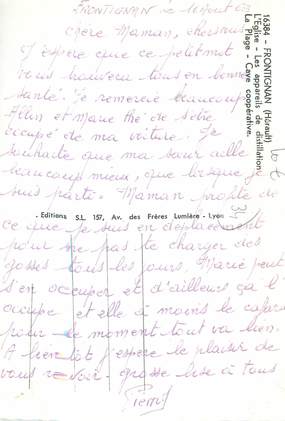 FRONTIGNAN le 16 Aout 63
chère Maman,
J'espère que ce petit mot
vous trouvera tous en bonne
santé. Je remercie beaucoup
Alin et Marie thé de s'etre
occupé de ma voiture. Je
souhaite que ma sœur aille
beaucoup mieux, que lorsque je
suis parti. Maman profite de
ce que je suis en déplacement
pour ne pas te charger des
gosses tous les jours. Marie peut
s'en occuper et d'ailleurs ça l'
occupe et elle a moins le cafard
pour le moment tout va bien.
A bientôt j'espère le plaisir de
vous revoir. grosse bise à tous
Pierrot
- Editions S.L. 157, Av. des Frères Lumière - Lyon
16384 - FRONTIGNAN (Hérault)
L'Eglise - Les appareils de distillation
La Plage - Cave coopérative.